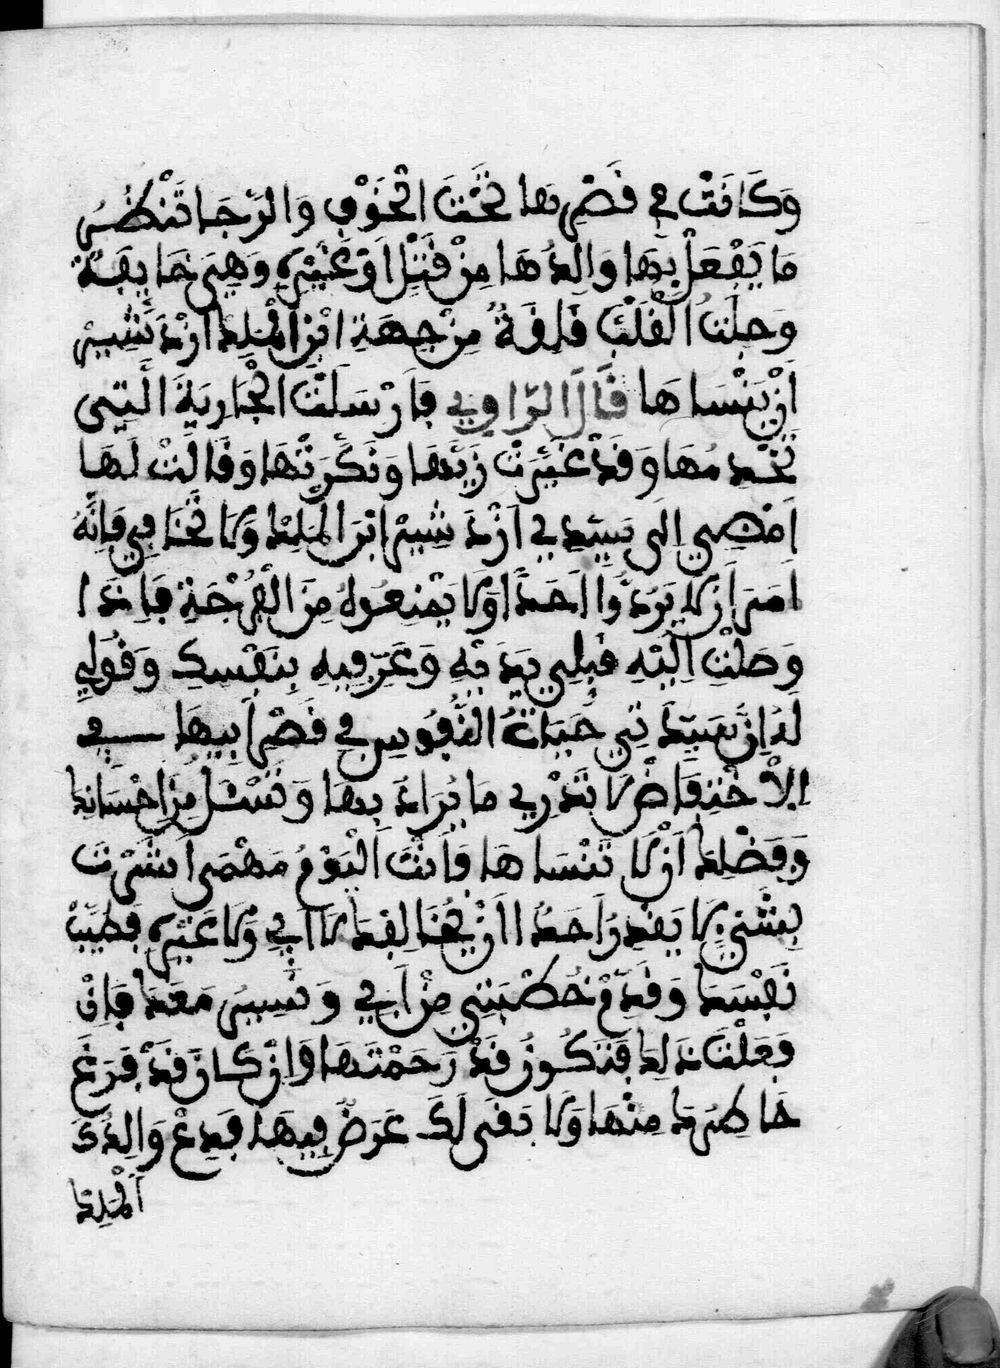 وَكَانَتْ فِي قَصْرِهَا تَحْتَ الْخَوْفِ وَالرَّجَا تَنْظُرُ
مَا يَفْعَلْ بِهَا وَالِدُهَا مِنْ قَتْلٍ اَوْ غَيْرِهِ وَهِيَ خَايِفَةٌ
وَجِلَتُ الْقَلْبِ قَلِقَةٌ مِنْ جِهَةِ ابْنِ الْمَلِكْ اَزْدَ شِيرْ
اَنْ يَنْسَاهَا قَالَ الرَّاوِي فَاَرْسَلَتْ الْجَارِيَةَ الَّتِي
تَخْدِمُهَا وَقَدْ غَيَّرَتْ زَيَّهَا وَنَكَّرَتْهَا وَقَالَتْ لَهَا
اَمْضِي اِلَى سَيِّدِي اَزْدَ شِيرْ ابْنَ الْمَلِكْ وَلَا تَخَافِي فَاِنَّهُ
اَمَرَ اَنْ لَا يَرَدُّوا اَحَدًا وَلَا يَمْنِعُوهُ مِنَ الْفُرْجَةِ فَاِذَا
وَصَلْتِ اِلَيْهِ قَبِّلِي يَدَيْهِ وَعَرِّفِيهِ بِنَفْسِكِ وَقُولِي
لَهُ اِنَّ سَيِّدَتِي حَيَاتُ النُّفُوسِ فِي قَصْرِ اَبِيهَا فِي
الْاِحْتِفَاضْ لَا تَدْرِي مَا يُرَادُ بِهَا وَتَسْئَلُ مِنْ اِحْسَانِكَ
وَفَضْلِكَ اَنْ لَا تَنْسَاهَا وَاَنْتَ الْيَوْمُ مَهْمَى اَشَرْتَ
بِشَيْءٍ لَا يَقْدِرُ اَحَدٌ اَنْ يُخَالِفَكَ لَا اَبِي وَلَا غَيْرِهِ فَطَيِّبْ
نَفْسَكَ وَقَدِّمْ خُطْبَتِي مِنْ اَبِي وَنَسِيرُ مَعَكَ فَاِنْ
فَعَلْتَ ذَلِكَ فَتَكُونُ قَدْ رَحَمْتَهَا وَاِنْ كَانَ قَدْ فَرَغَ
خَاطِرَكَ مِنْهَا وَلَا بَقَى لَكَ غَرَضٌ فِيهَا فَدِعْ وَالِدَكَ
اَلْمَلِكْ